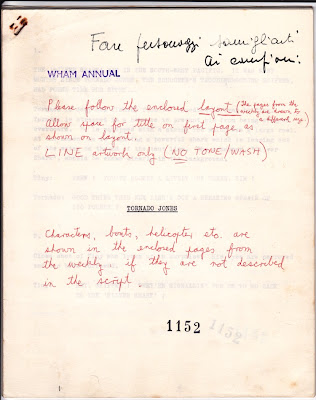 Fare personaggi somiglianti
ai campioni.
WHAM ANNUAL
Please follow the enclosed layout (The pages from the
weekly are drawn to
a different size.)
Allow space for title on first page, as
shown on layout.
LINE artwork only (NO TONE/WASH)
TORNADO JONES
Characters, boats, helicopter, etc. are
shown in the enclosed pages from
the weekly if they are not described
in the script.
1152
1152